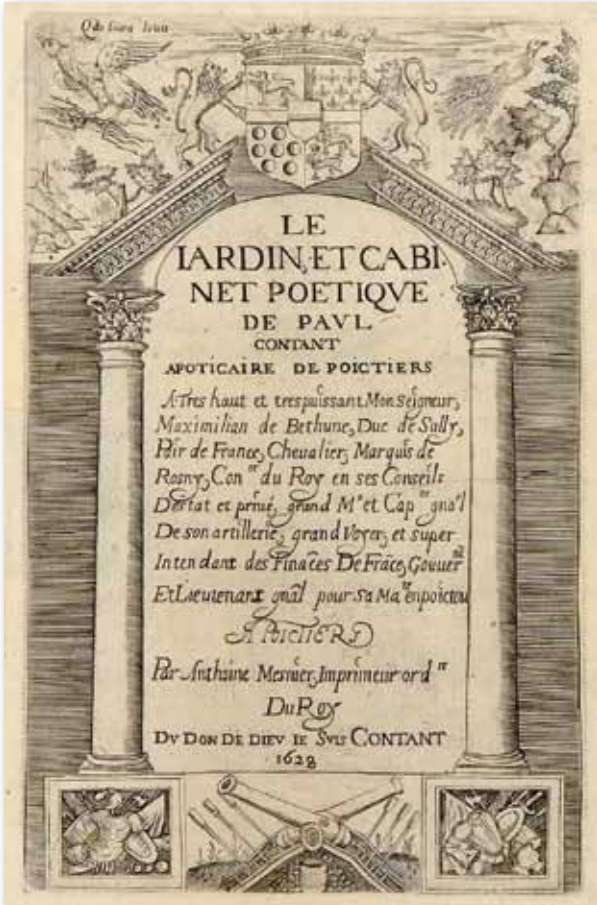 LE
IARDIN, ET CABI-
NET POETIQVE
DE PAVL
CONTANT
APOTICAIRE DE POICTIERS
A Tres haut et trespuissant Monseigneur,
Maximilian de Bethune, Duc de Sully,
Pair de France, Cheualier, Marquis de
Rosny, Con.er du Roy en ses Conseils
Destat et priué, grand Me et Capne gnal
De son artillerie, grand Voyer, et super
Intendant des Finãces De Frãce, Gouuer
Et Lieutenant gnãl pour Sa Mate en poictou
A POICTIERS
Par Anthoine Mesnier, Imprimeur ordre
Du Roy
DV DON DE DIEV IE SVIS CONTANT
1628